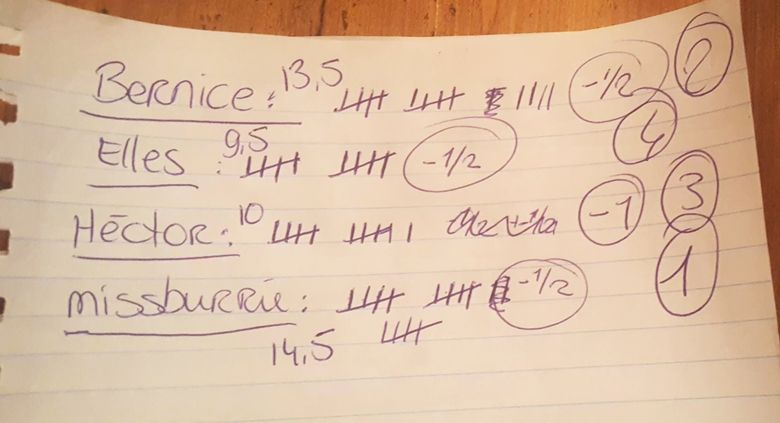 Bernice: 13,5 |||| |||| |||| -1/2 2
Elles: 9,5 |||| |||| -1/2 4
Héctor: 10 |||| |||| | -1 3
missburrie: |||| |||| -1/2 1
14,5 ||||